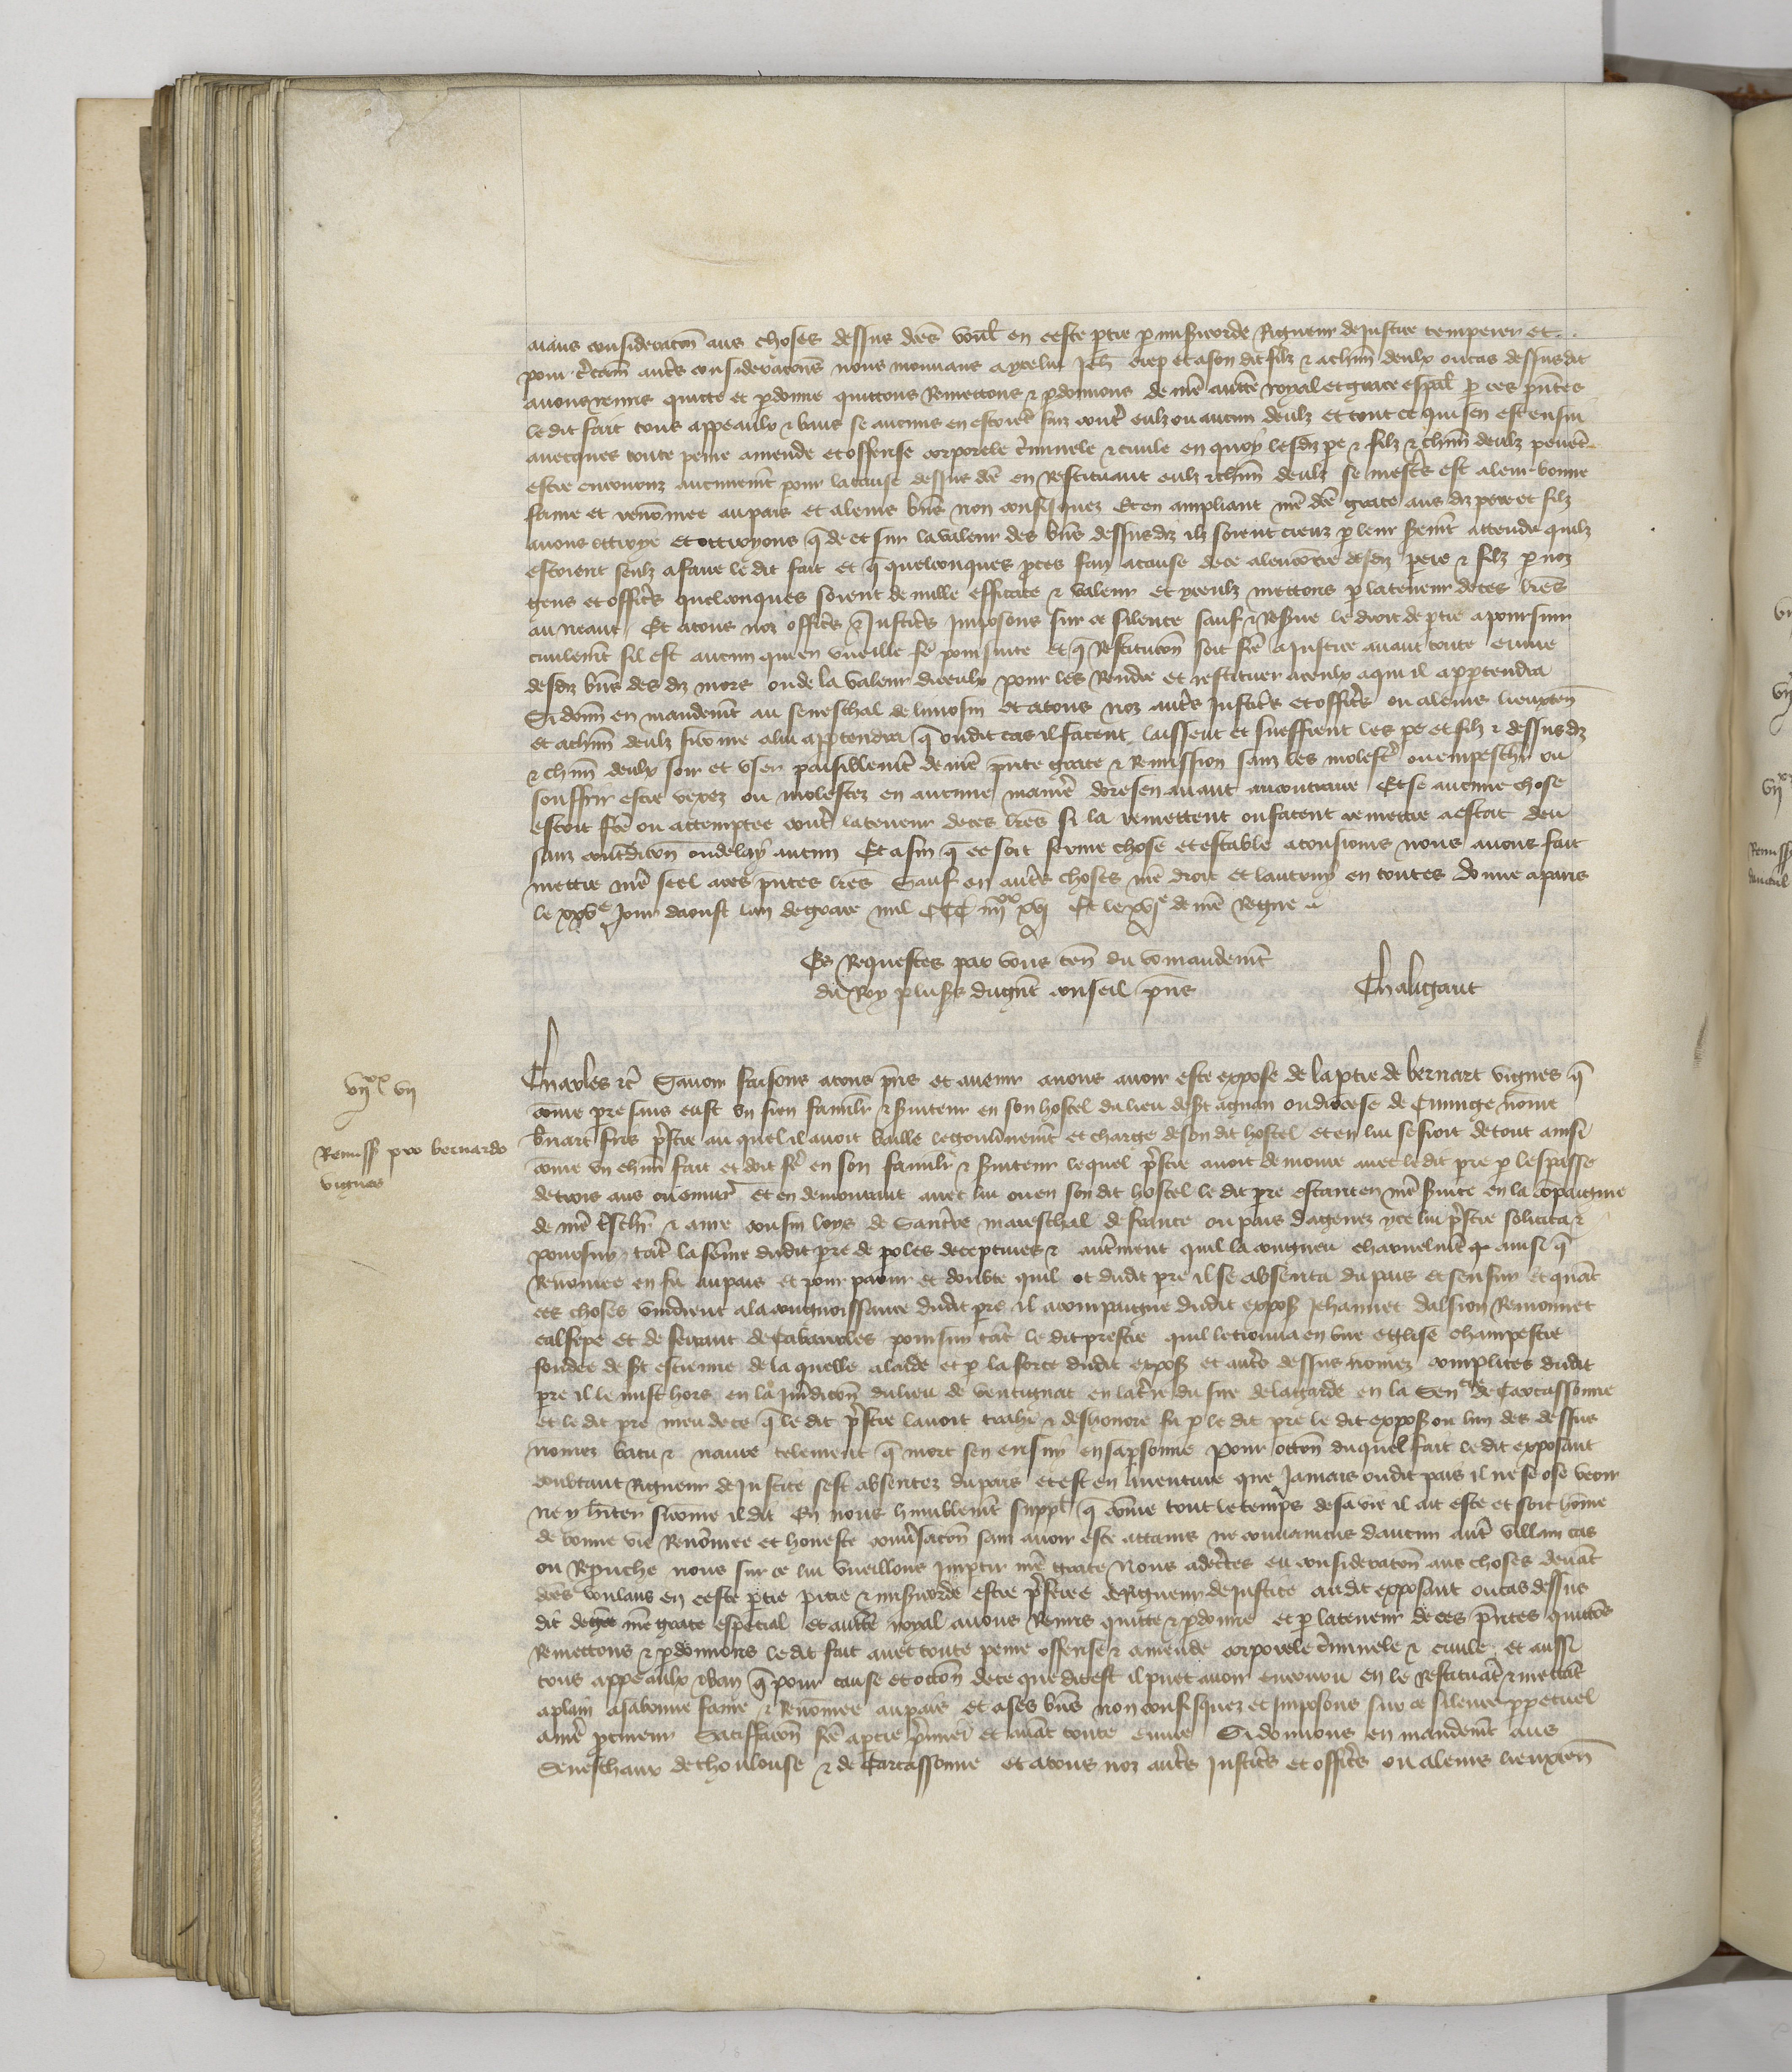 aians consideracion aus choses dessus dces voulz en ceste ptie p misericorde Rigueur de Justice temperer et
pour ctain autres consideracions nous mouvans a ycelui Jeh et a son dit filz & achun deulx ou cas dessusdit
avons remis quicte et pdonne quictons Remettons & pdonnons de nre aucte royal et grace espal p ces pntes
le dit fait tous appeaulx & bans se aucuns en estoient faiz contre eulz ou aucun deulz et tout ce qui sen est ensui
avecques toute peine amende et offense corporele criminele & civile en quoy lesdz pe & filz & chun deulz pevent
estre encouruz aucunemt pour la cause dessus dce en Restituant eulz & chun deulz se mestr est a leur bonne
fame et renommee au pais et a leurs bns non confisquez Et en ampliant nre dce grace aus dz pere et filz
avons ottroye et ottroyons q de et sur la valeur des bns dessusdz ilz soient creuz p leur seremt attendu quilz
estoient seulz a faire le dit fait et q quelconques pces faiz a cause de ce alencontre desdz pere & filz p noz
gens et officrs quelconques soient de nulle efficace & valeur et yceulz mettons p la teneur de ces lres
au neant Et a tous noz officrs & Justicrs Imposons sur ce silence sauf & Reserve le droit de ptie a poursuir
civilemt sil est aucun qui en vueille fe poursuite et q Restitucion soit fce a Justice avant toute euvre
desdz bns des dz mors ou de la valeur diceulx pour les Rendre et restituer a ceulx a qui il apptendra
Si donn en mandemt au seneschal de limosin et a tous noz autrs Justicrs et officrs ou a leurs lieuxten
et achun deulz si come a lui apptendra q ou dit cas il facent laissent et sueffrent les pe et filz & dessusdz
& chun deulx joir et user paisiblemt de nre pnte grace & Remission sanz les molestr ou empeschr ou
souffrir estre vexez ou molestez en aucune manre doresenavant au contraire Et se aucune chose
estoit fce ou attemptee contre la teneur de ces lres si la remettent ou facent remettre a estat deu
sanz contredicion ou delay aucun Et afin q ce soit ferme chose et estable a tousjours nous avons fait
mettre nre seel a ces pntes lres Sauf en autrs choses nre droit et lautruy en toutes Donne a paris
le xxve Jour daoust lan de grace mil CCC iiiixx xvj Et le xvje de nre Regne
Es Requestes par vous ten du comandemt
du Roy plusrs du gnt conseil pns Chaligaut
vijxx vij
Remiss pro bernardo
vignes
Charles &c Savoir faisons a tous pns et avenir a nous avoir este expose de la ptie de bernart vignes q
come pre suis eust un sien familir & serviteur en son hostel du lieu de St agnan ou diocese de Cominge nome
bnart pbre au quel il avoit baille le gouvnemt et charge de son dit hostel et en lui se fioit de tout ainsi
come un chun fait et doit fe en son familir & serviteur lequel pbstre avoit demoure avec le dit pre p lespasse
de trois ans ou envir Et en demourant avec lui ou en son dit hostel le dit pre estant en nre service en la compaignie
de nre treschr & ame cousin loys de Sancrre mareschal de france ou pais dagenez yce lui pbstre solicita &
poursuy tant la feme dudit pre de poles deceptives & autrment quil la congneu charnelmt & ainsi q
Renomee en fu au pais et pour paour et doubte quil ot dudit pre il se absenta du pais et sen fuy et quant
ces choses vindrent a la congnoissance dudit pre il acompaigne dudit expos Jehannet dalsion Remonnet
calsepe et de sevaut de Cabaroles poursuy tant le dit prestre quil le trouva en une eglise champestre
fondee de St estienne de laquelle alaide et p la force dudit expos et autrs dessus nomez complices dudit
pre il le mist hors en la Juridicion du lieu de ventugnac en la trre du sire de lagarde en la Senee de Carcassonne
et le dit pre meu de ce q le dit pbstre lavoit trahi & deshonore fu p le dit pre le dit expos ou lun des dessus
nomez batu & navre telement q mort sen ensuy en sa psonne Pour occon duquel fait le dit exposant
doubtant Rigueur de Justice sest absentez du pais et est en aventure que Jamais oudit pais il ne se ose veoir
ne y hiter si come il dit En nous humblemt suppl q come tout le temps de sa vie il ait este et soit home
de bonne vie Renomee et honeste convsacion sanz avoir este attains ne convaincus daucun autre villain cas
ou Reprche nous sur ce lui vueillons Impartir nre grace Nous adcertes eu consideracion aus choses devant
dces voulans en ceste ptie pitie & misericorde estre pferee a Rigueur de Justice au dit exposant ou cas dessus
dit de nre grace especial et aucte royal avons Remis quicte & pdonne et p la teneur de ces pntes quictons
Remettons & pdonnons le dit fait avec toute peine offense & amende corporele criminele & civile et aussi
tous appeaulx & ban q pour cause et occon de ce que dit est il puet avoir encouru en le Restituant & mettant
a plain a sa bonne fame & Renomee au pais et a ses bns non confisquez et Imposons sur ce silence ppetuel
a nre pcureur Satisfacion fce a ptie pmier et avant toute euvre Si donnons en mandemt aus
Seneschaux de Thoulouse & de Carcassonne et a tous noz autrs Justicrs et officrs ou a leurs lieuxten